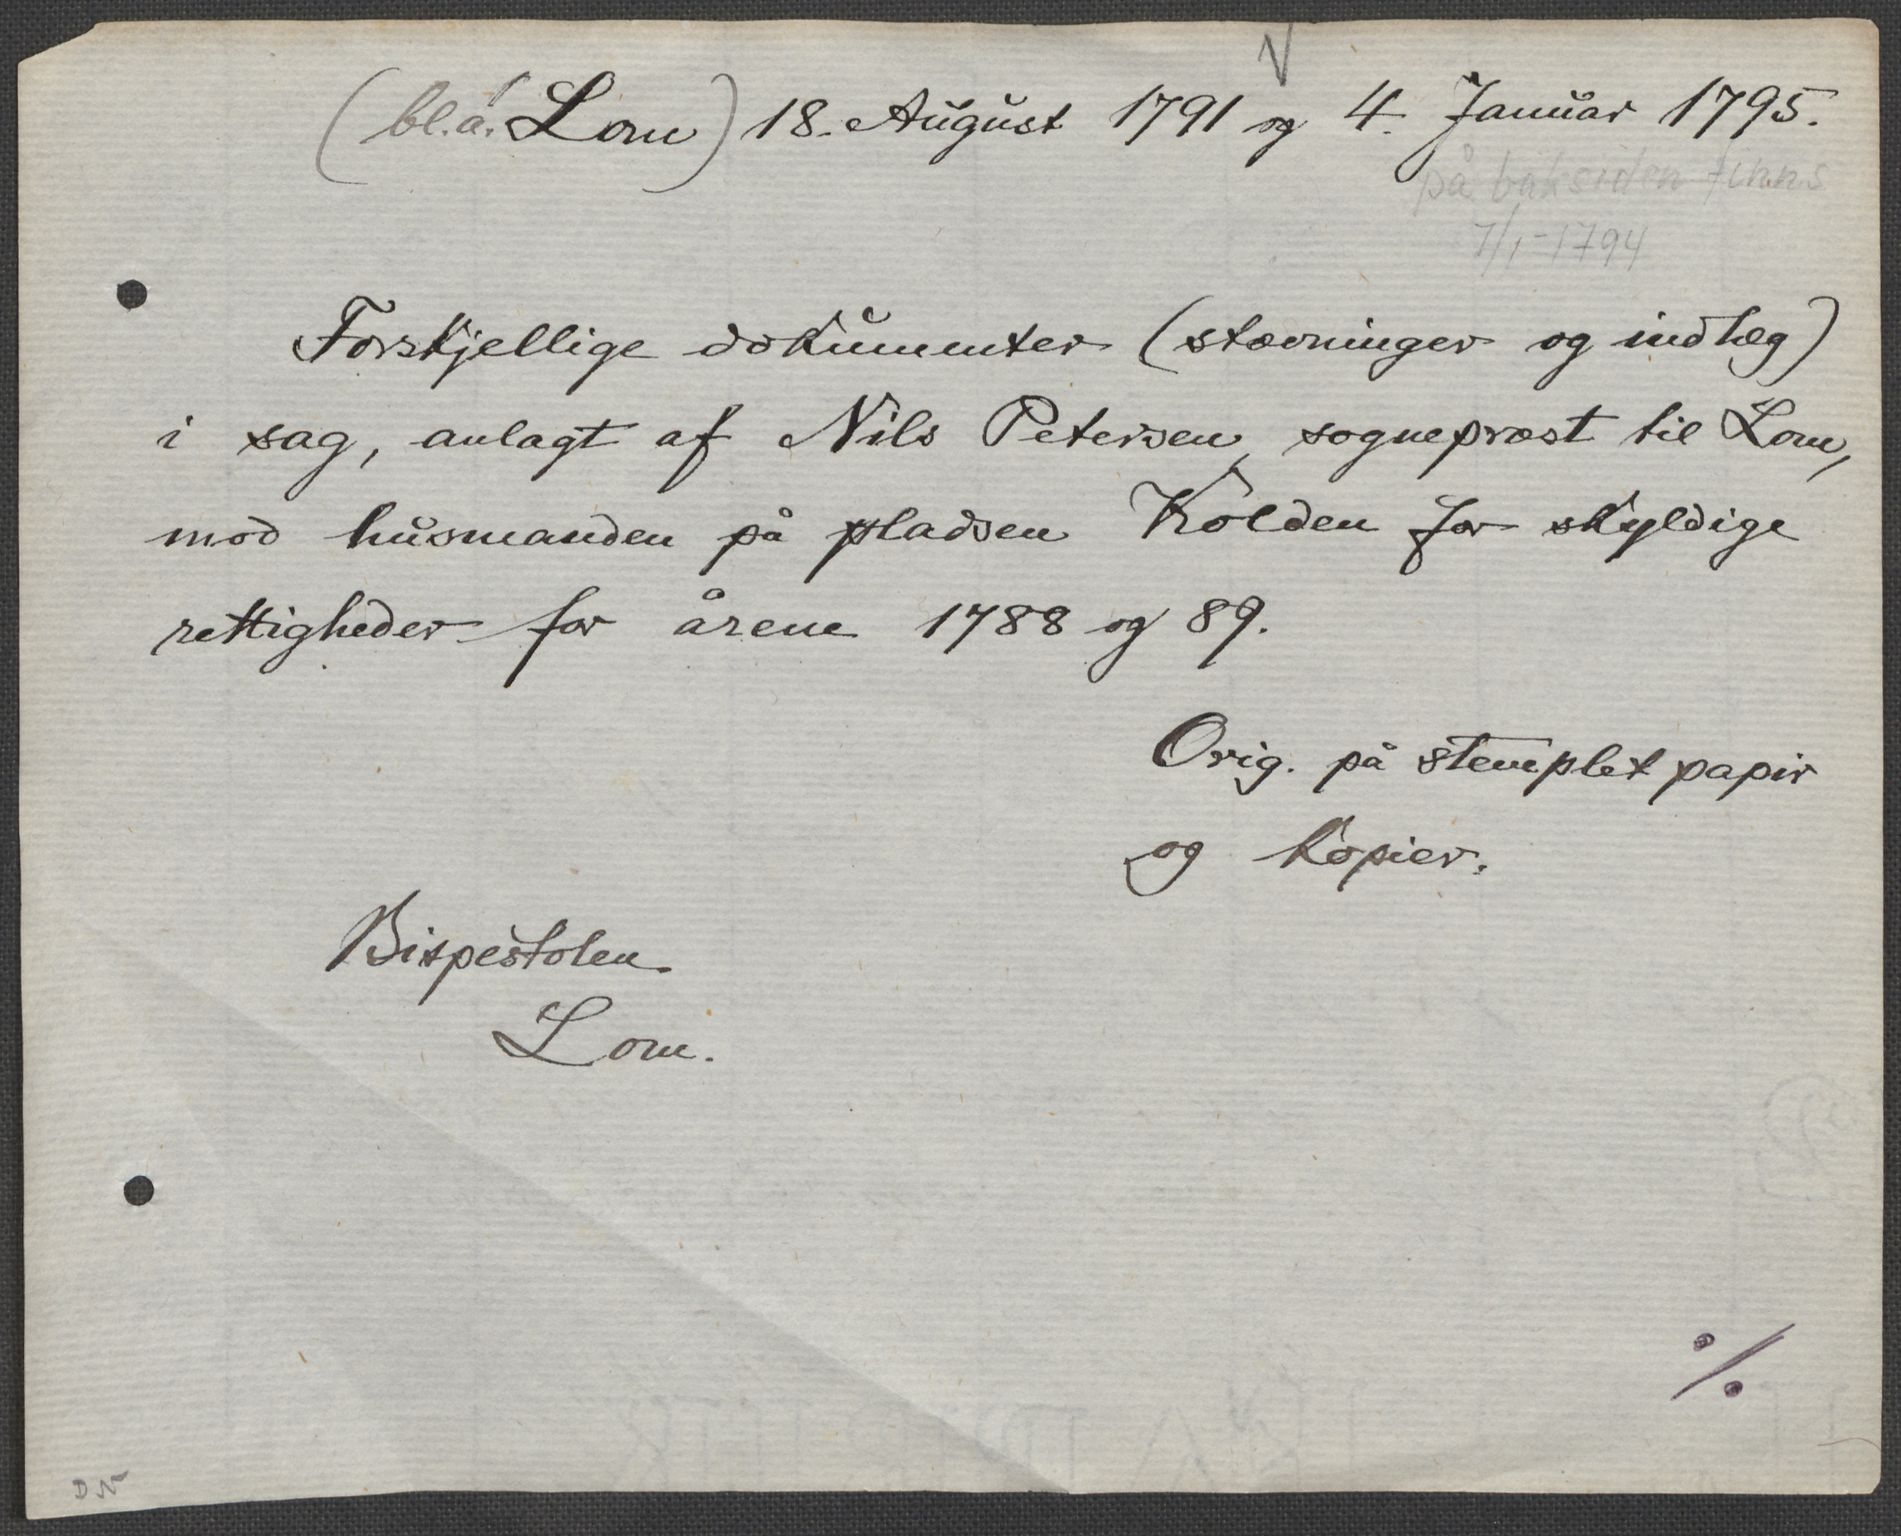 (bl.a. Lom) 18. August 1791 og 4. Januar 1795.
på baksiden finns
7/1-1794
Forskjellige dokumenter (stævninger og indlæg)
i sag, anlagt af Nils Petersen, sognepræst til Lom,
mod husmanden på pladsen Kolden for skyldige
rettigheder for årene 1788 og 89.
Orig. på stemplet papir
og kopier.
Bispestolen
Lom.
%